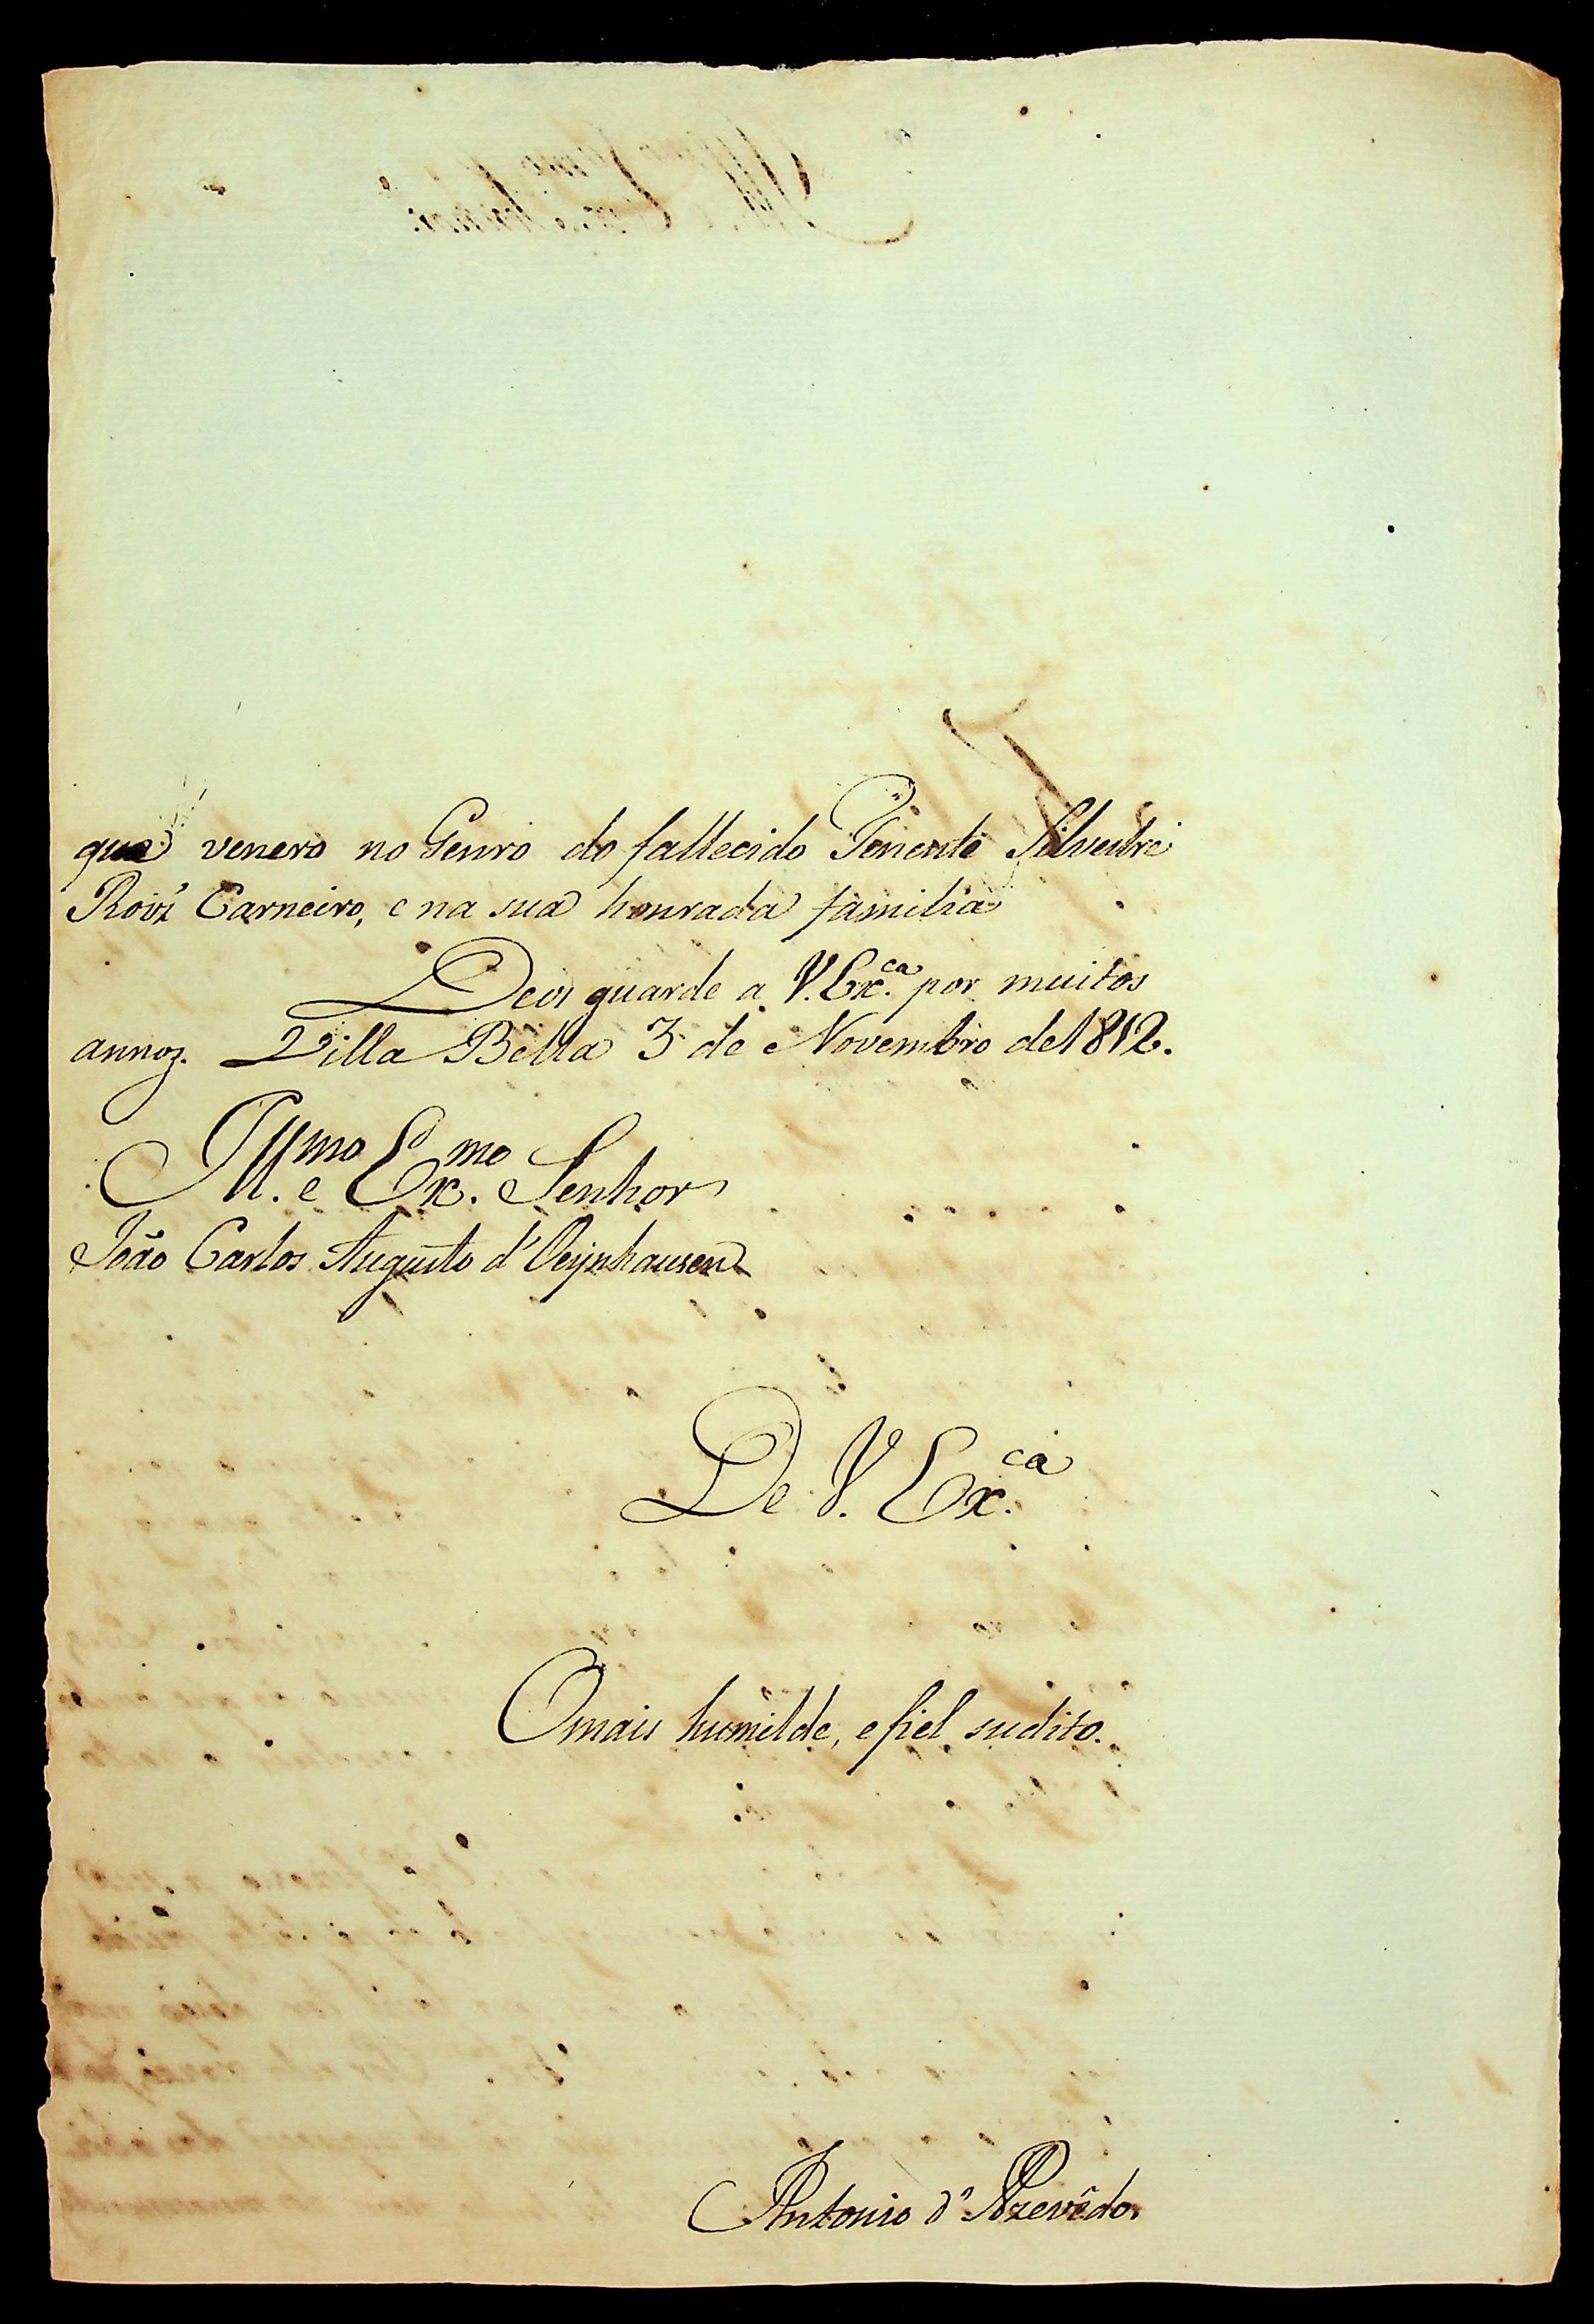 que venero no Genro do fallecido Tenente Silvestre
Roiz' Carneiro, e na sua honrada familia
Deos guarde a V. Ex.ca por muitos
annos. Villa Bella 3 de Novembro de 1812.
Ill.mo e Ex.mo Senhor
João Carlos Augusto d'Oeynhausen
De V. Ex.ca
O mais humilde, e fiel sudito.
Antonio d'Azevêdo.